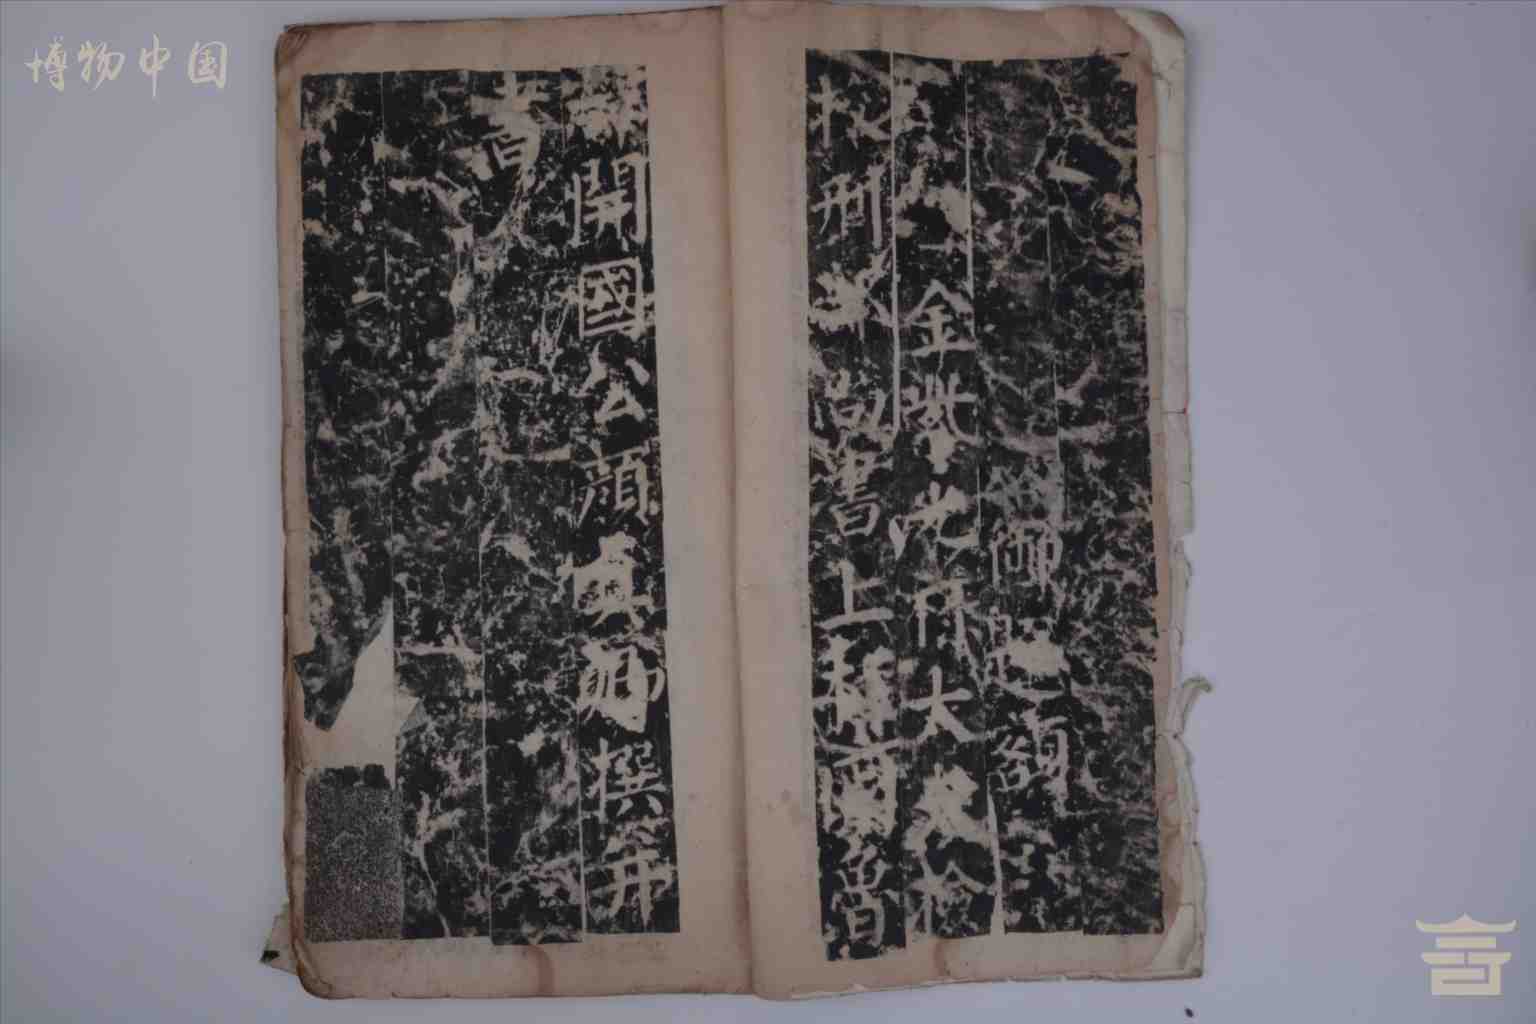 博物中国
御題額
金紫光祿大夫檢
校刑部尚書上柱國魯
郡開國公顏真卿撰并
書